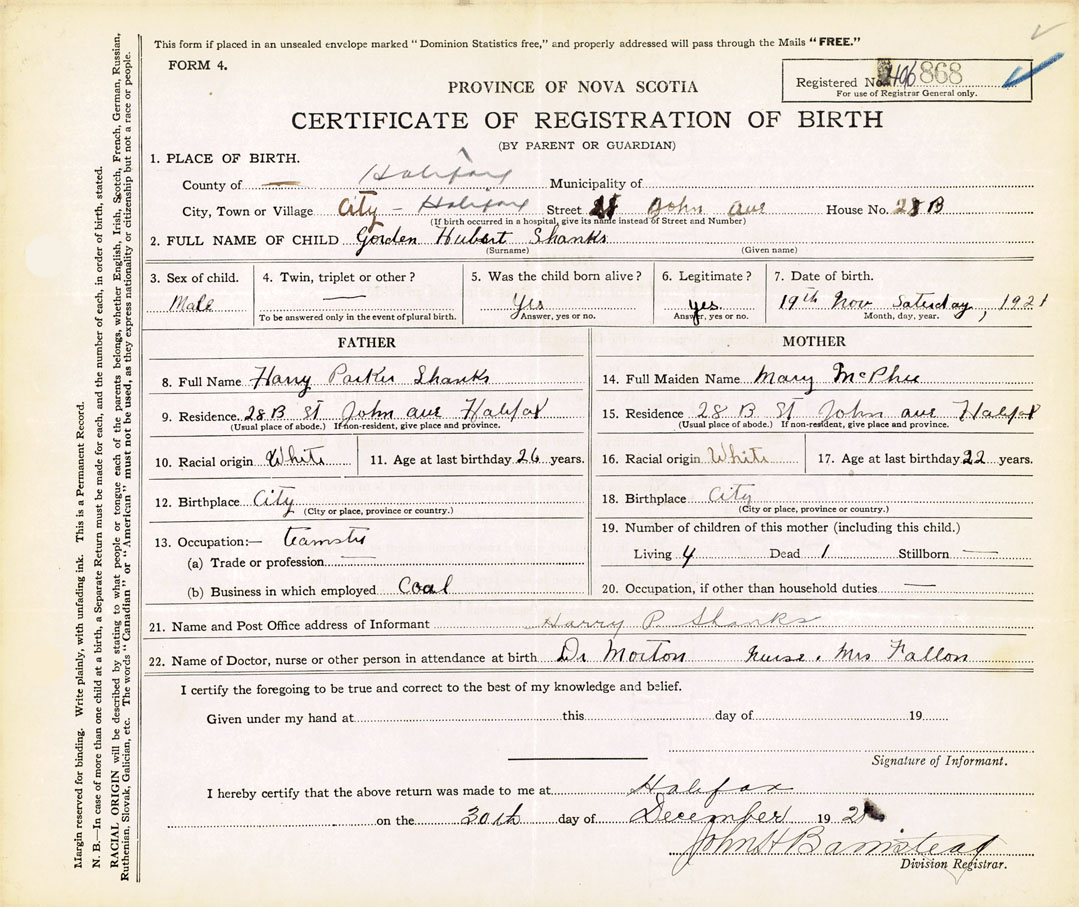 This form if placed in an unsealed envelope marked "Dominion Statistics free," and properly addressed will pass through the Mails "FREE."
FORM 4.
Registered No. 868
For use of Registrar General only.
PROVINCE OF NOVA SCOTIA
CERTIFICATE OF REGISTRATION OF BIRTH
(BY PARENT OR GUARDIAN)
1. PLACE OF BIRTH.
County of — Halifax Municipality of
City, Town or Village City - Halifax Street John ave House No. 28 B
(If birth occurred in a hospital, give its name instead of Street and Number)
2. FULL NAME OF CHILD Gorden Hubert Shanks
(Surname) (Given name)
3. Sex of child. 4. Twin, triplet or other? 5. Was the child born alive? 6. Legitimate? 7. Date of birth.
Male — Yes yes. 19th Nov Saturday, 1921
To be answered only in the event of plural birth. Answer, yes or no. Answer, yes or no. Month, day, year.
FATHER
8. Full Name Harry Parker Shanks
9. Residence 28 B St John ave Halifax
(Usual place of abode.) If non-resident, give place and province.
10. Racial origin White 11. Age at last birthday 26 years.
12. Birthplace City
(City or place, province or country.)
13. Occupation:— teamster
(a) Trade or profession —
(b) Business in which employed Coal
MOTHER
14. Full Maiden Name Mary McPhee
15. Residence 28 B St John ave Halifax
(Usual place of abode.) If non-resident, give place and province.
16. Racial origin White 17. Age at last birthday 22 years.
18. Birthplace City
(City or place, province or country.)
19. Number of children of this mother (including this child.)
Living 4 Dead 1 Stillborn —
20. Occupation, if other than household duties —
21. Name and Post Office address of Informant Harry P. Shanks
22. Name of Doctor, nurse or other person in attendance at birth Dr Morton nurse. Mrs Fallon
I certify the foregoing to be true and correct to the best of my knowledge and belief.
Given under my hand at this day of 19
Signature of Informant.
I hereby certify that the above return was made to me at Halifax
on the 30th day of December 192
John H Barnstead
Division Registrar.
Margin reserved for binding. Write plainly, with unfading ink. This is a Permanent Record.
N. B.—In case of more than one child at a birth, a Separate Return must be made for each, and the number of each, in order of birth, stated.
RACIAL ORIGIN will be described by stating to what people or tongue each of the parents belongs, whether English, Irish, Scotch, French, German, Russian,
Ruthenian, Slovak, Galician, etc. The words "Canadian" or "American" must not be used, as they express nationality or citizenship but not a race or people.